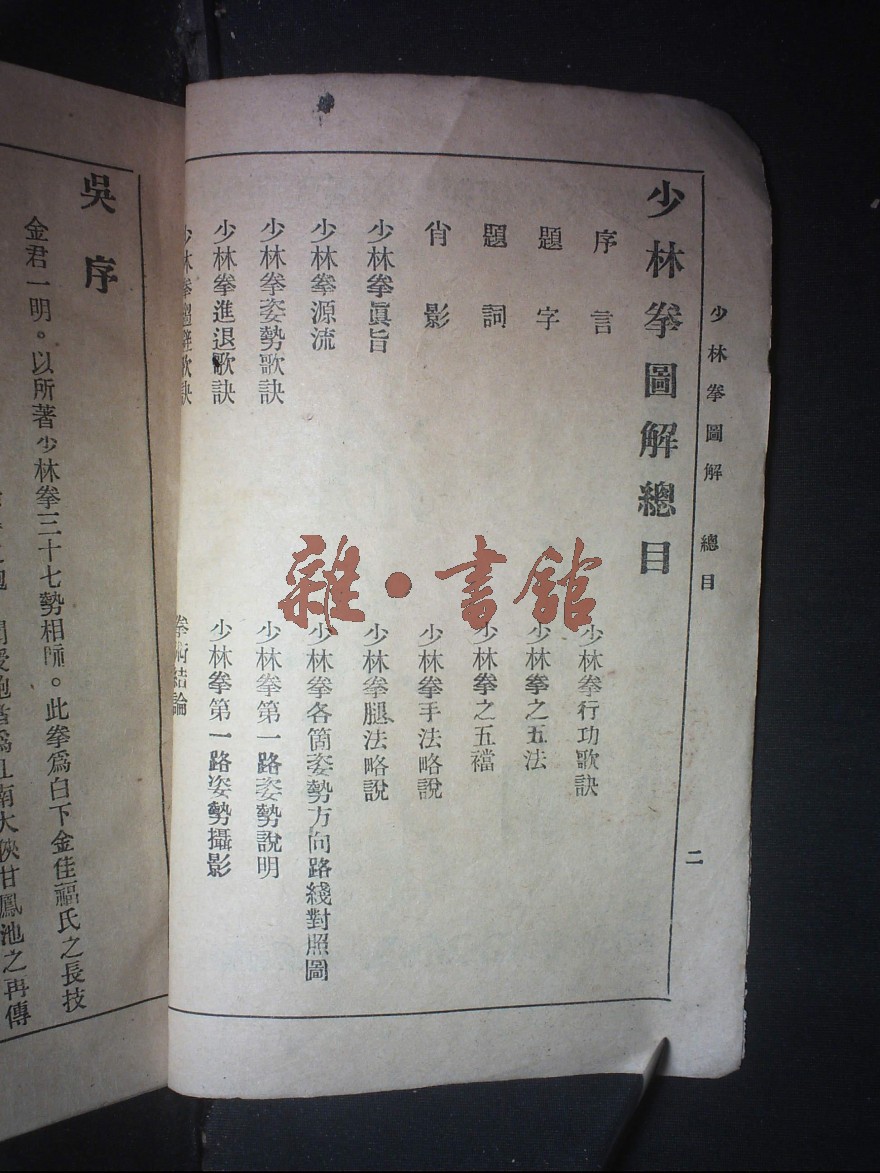 少林拳圖解 總目 二
少林拳圖解總目
序言
題字
題詞
肖影
少林拳眞旨
少林拳源流
少林拳姿勢歌訣
少林拳進退歌訣
少林拳歌訣
少林拳行功歌訣
少林拳之五法
少林拳之五襠
少林拳手法略說
少林拳腿法略說
少林拳各箇姿勢方向路綫對照圖
少林拳第一路姿勢說明
少林拳第一路姿勢攝影
拳術結論
雜·書館
吳序
金君一明。以所著少林拳三十七勢相眎。此拳爲白下金佳福氏之長技
南大俠甘鳳池之再傳